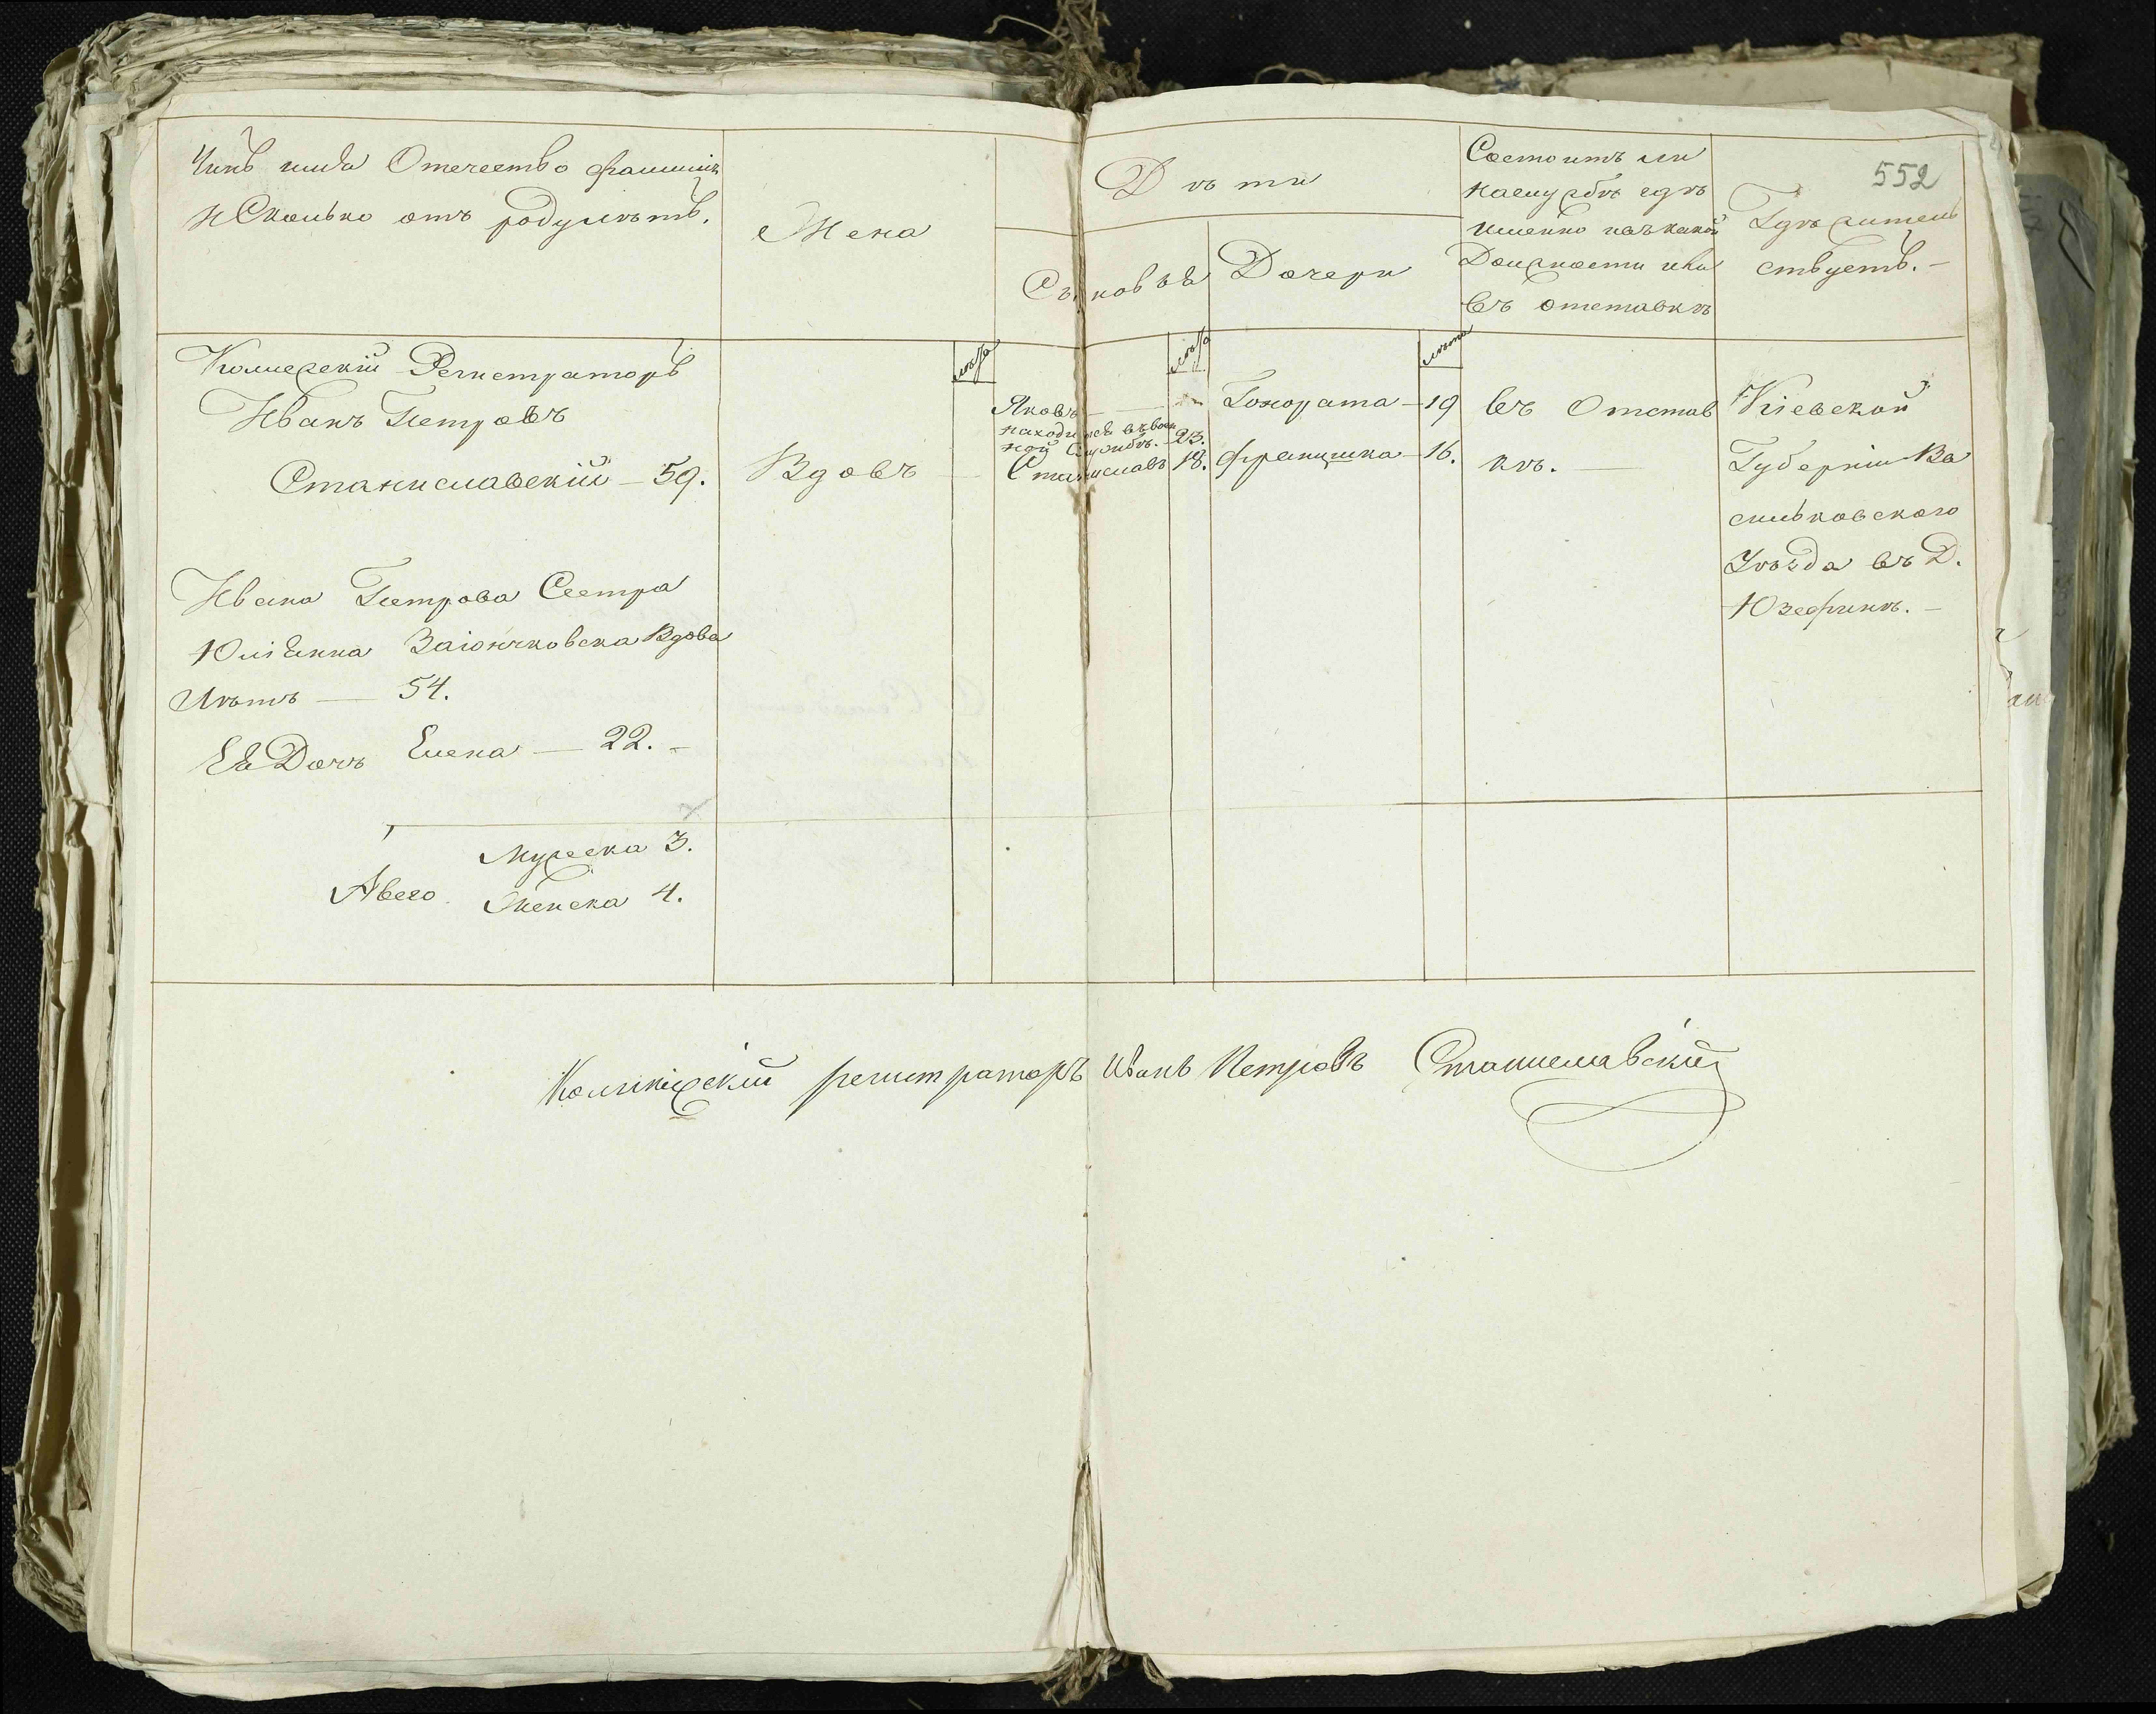 552
Чинъ имя Отечество фамилія
и Сколько отъ роду лѣтъ.
Жена
Дѣти
Сыновья
Дочери
Состоитъ ли
на службѣ гдѣ
именно на какой
Должности или
въ отставкѣ
Гдѣ житель
ствуетъ. -
лѣта
лѣта
лѣта
Колежскій Регистраторъ
Иванъ Петровъ
Станиславскій - 59.
Вдовъ
Яковъ
находится въ воен
ной Службѣ. - 23.
Станиславъ 18.
Гонората - 19
Францишка - 16.
въ Отстав
кѣ.
Кіевской
Губерніи Ва
сильковскаго
Уѣзда въ Д.
Юзефинѣ. -
Ивана Петрова Сестра
Юліанна Заіончковска Вдова
Лѣтъ - 54.
Ея Дочъ Елена - 22. -
Мужеска 3.
Авсего Женска 4.
Колежскій регистраторъ Иванъ Петровъ Станиславскій